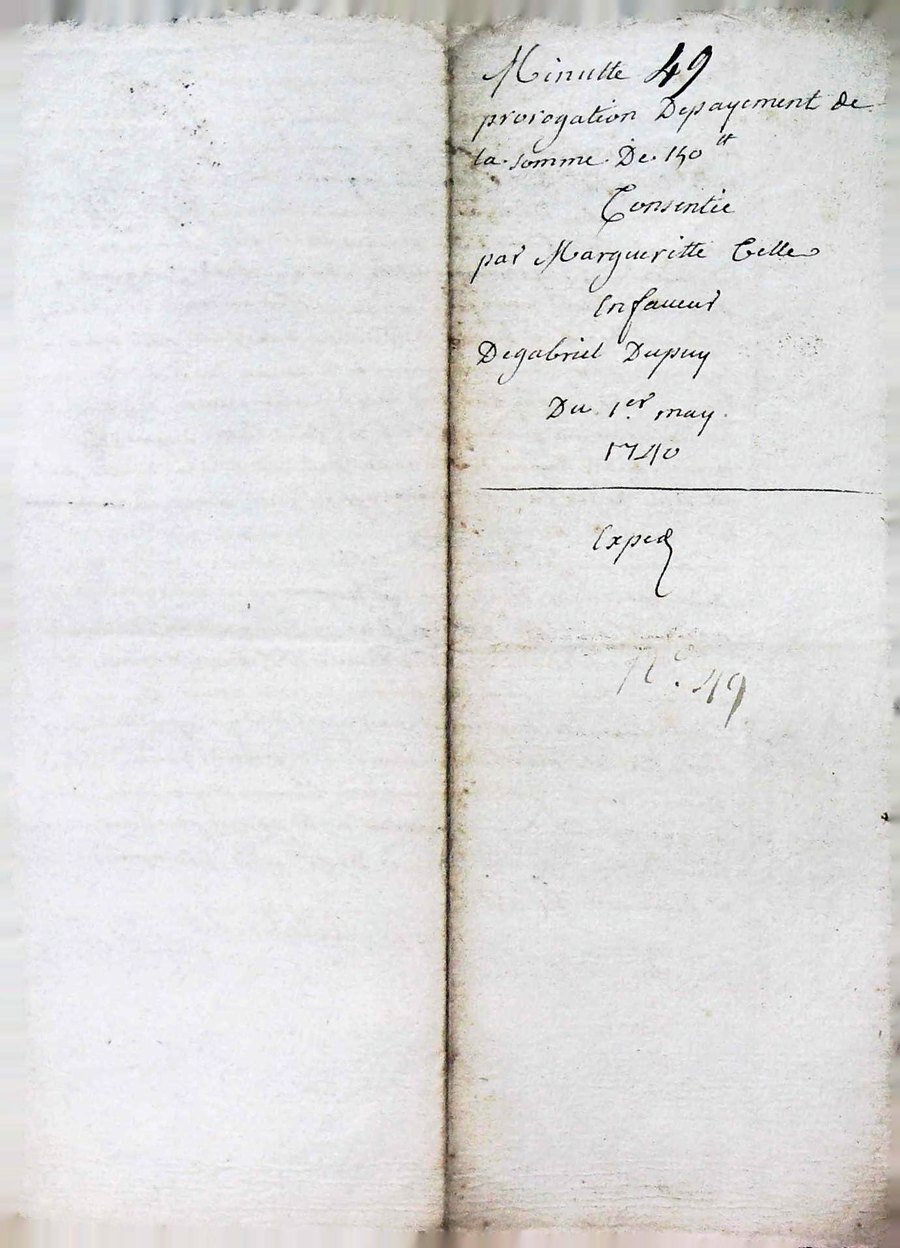 Minutte 49
prorogation Depayement de
la somme De 150 ₶
Consentie
par Margueritte Celle
Enfaveur
Degabriel Dupuy
Du 1.er may
1740
Exped
N.o 49